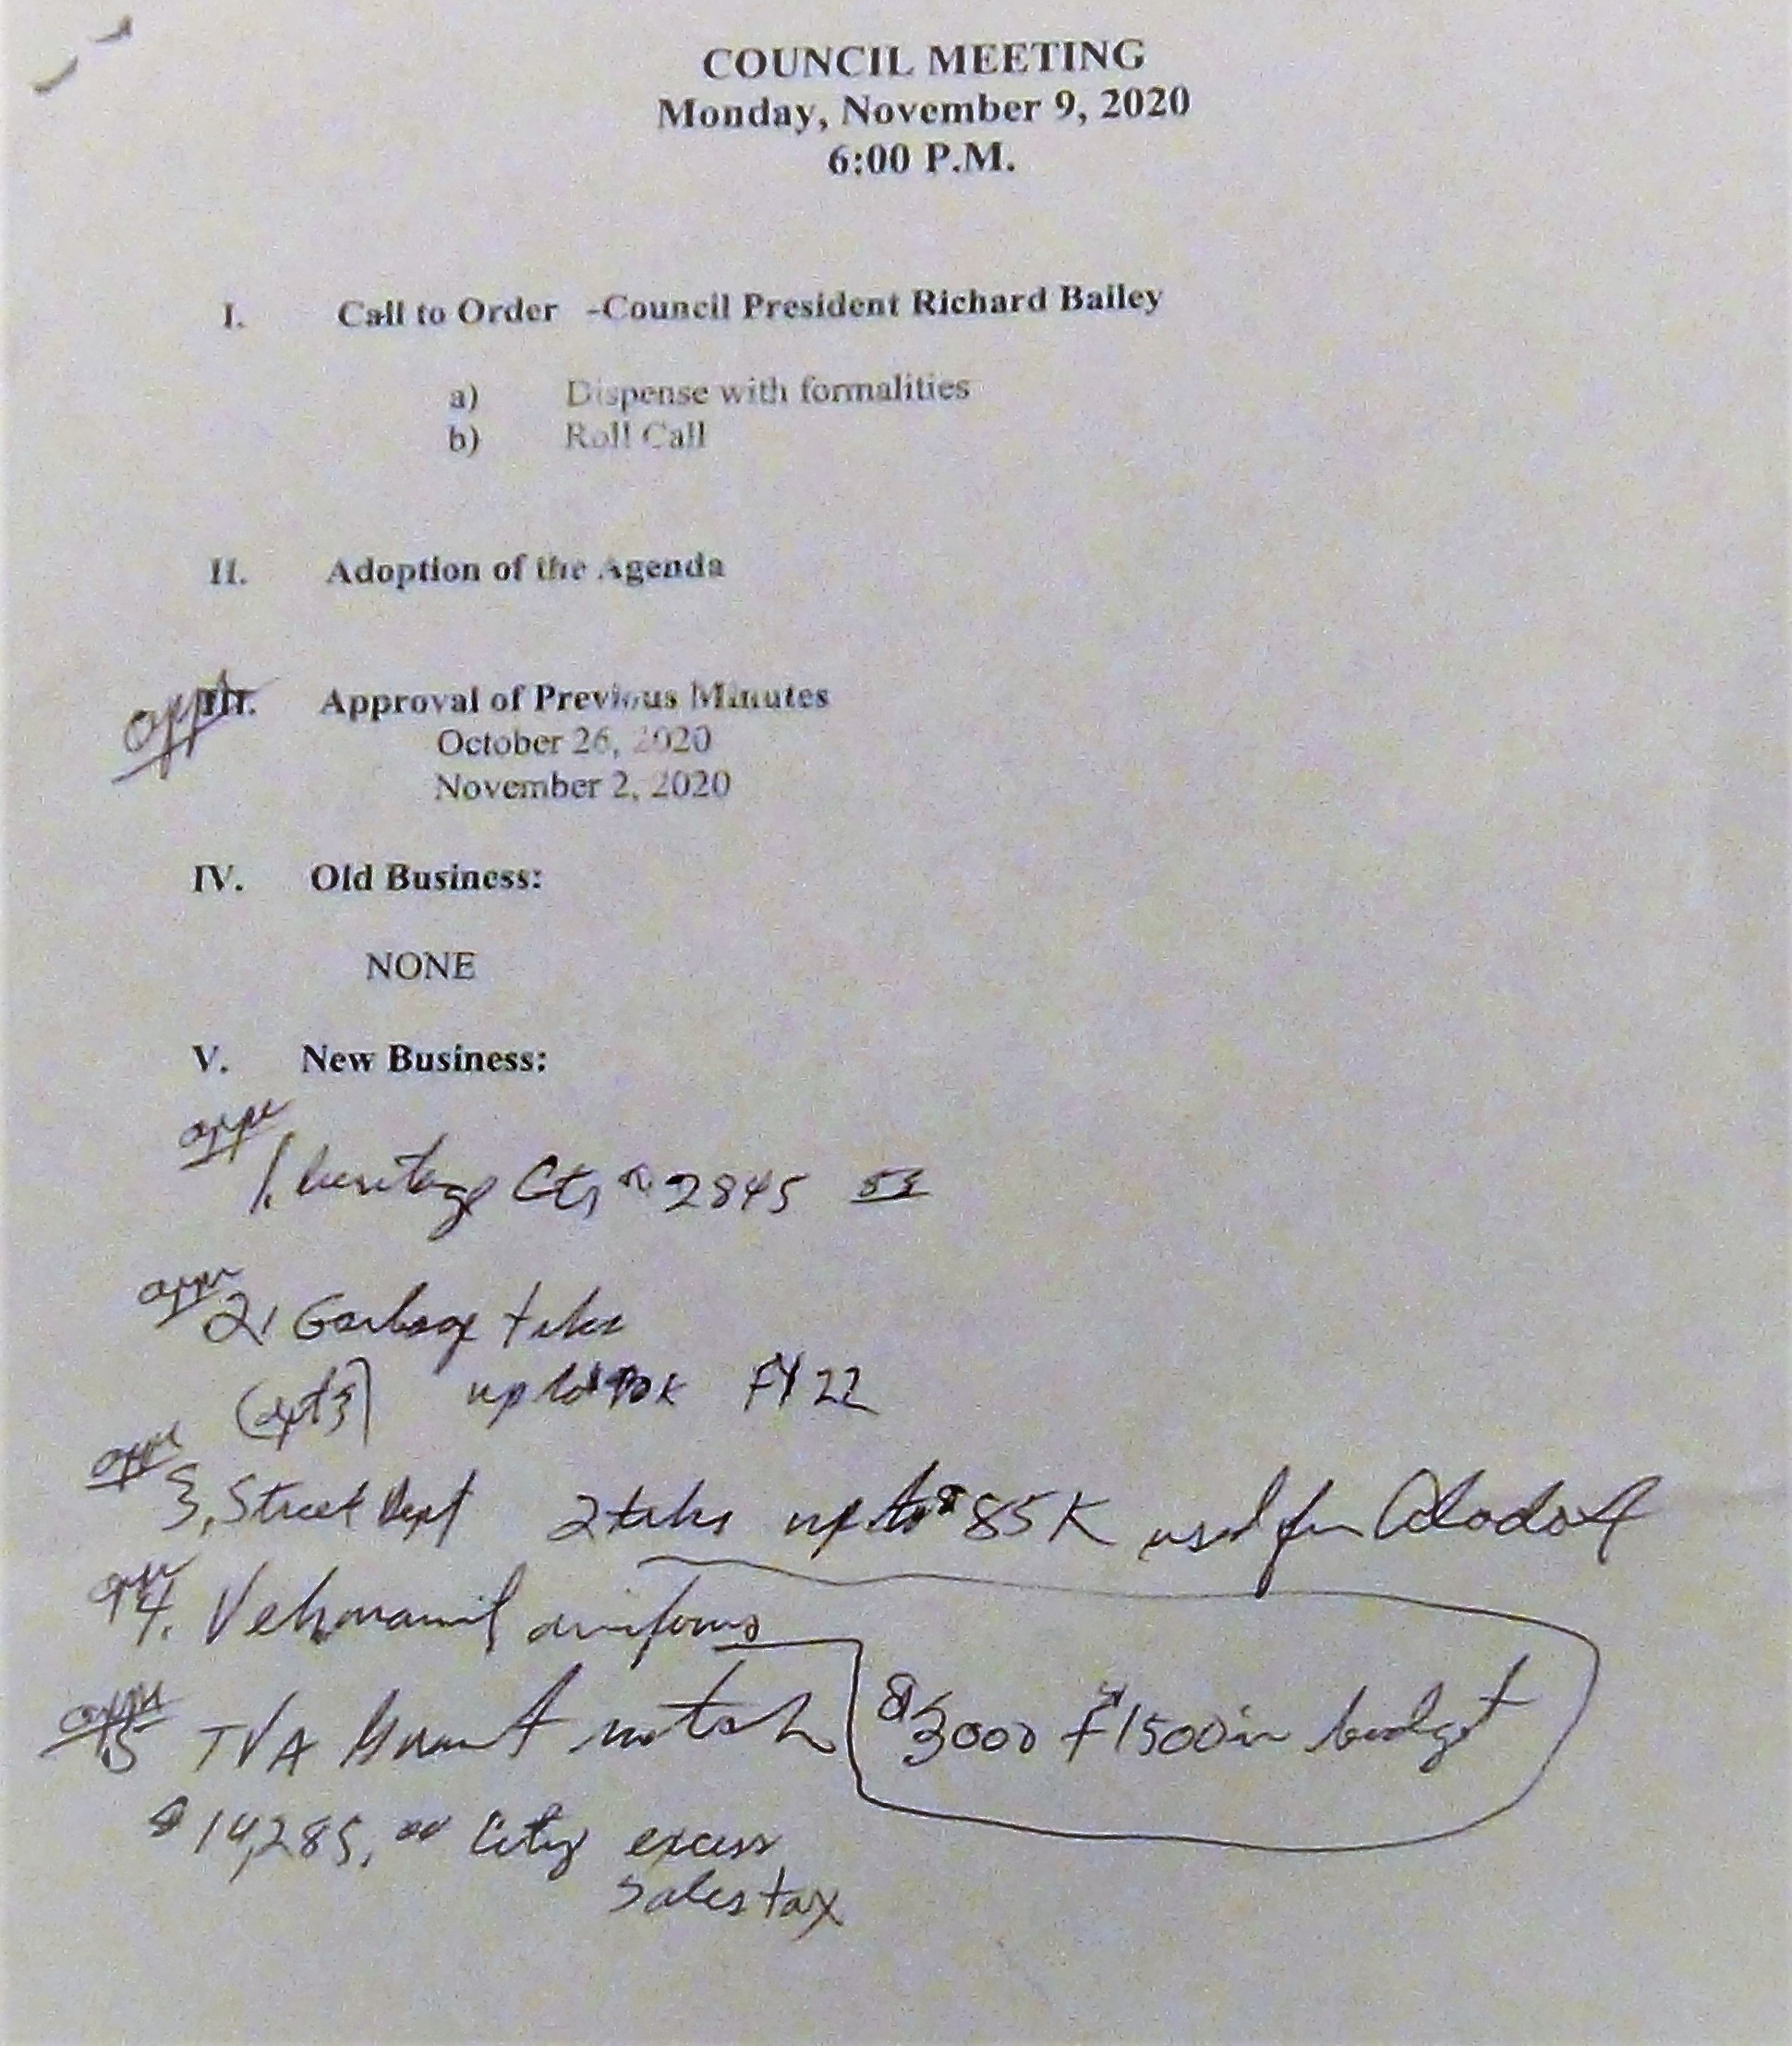 COUNCIL MEETING
Monday, November 9, 2020
6:00 P.M.
I. Call to Order -Council President Richard Bailey
a) Dispense with formalities
b) Roll Call
II. Adoption of the Agenda
III. Approval of Previous Minutes
October 26, 2020
November 2, 2020
IV. Old Business:
NONE
V. New Business:
appr
1. heritage Ctr 2845
appr
2. Garbage
up to FY 22
appr
3. Street Dept 2 up to $85K used for
appr
4. uniforms
appr
5 TVA Grant match $3000 $1500 in budget
$14,285.00 City excess
sales tax